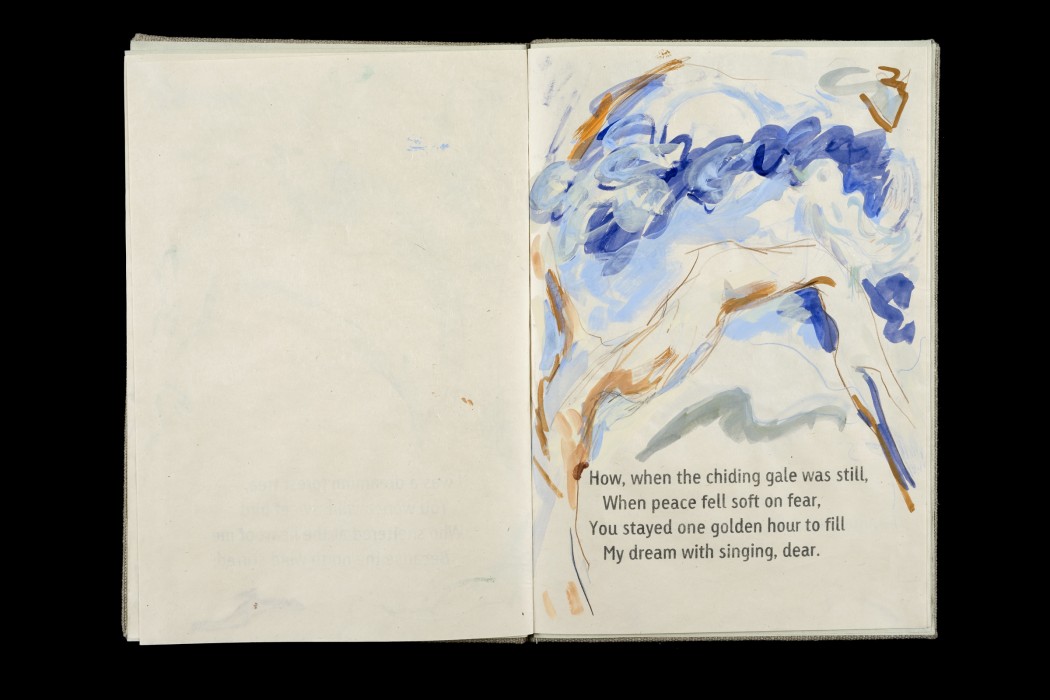 How, when the chiding gale was still,
When peace fell soft on fear,
You stayed one golden hour to fill
My dream with singing, dear.